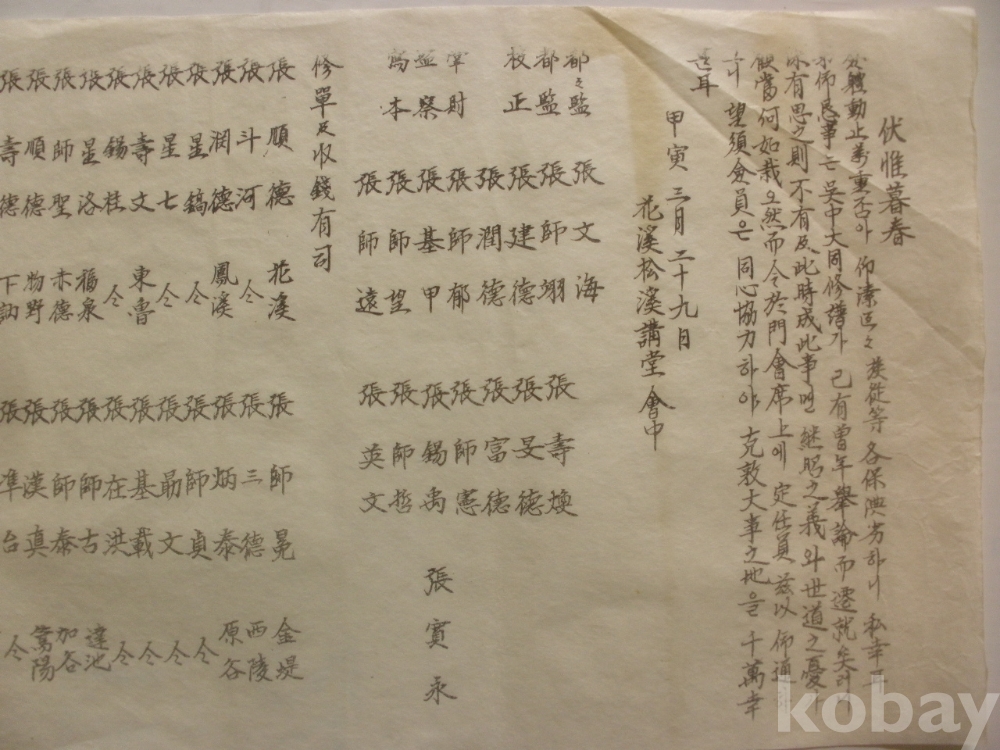 伏惟暮春
體動止萬重 仰溱區々 族從等 各保 私幸
吳中大同修譜가 己有曾年舉論而遷就矣
有思之則 不有及此時成此事면 継照之義와 世道之憂
當何如栽오 然而今於門會席上에 定任員 玆以 仰通
望須僉員은 同心協力하야 克敦大事之地을 千萬幸
耳
甲寅 三月 二十九日
花溪松溪講堂 會中
都々監 張文海 張壽煥
都監 張師翊 張旻德
校正 張建德 張富德
張潤德 張師憲
掌財 張師郁 張錫禹 張寅永
監察 張基甲 張師哲
爲本 張師望 張英文
張師遠
修單及収錢有司
張順德 花溪 張師晃 金堤
張斗河 仝 張三德 西陵
張潤德 鳳溪 張炳泰 原谷
張星鎬 仝 張師貞 仝
張星七 仝 張勗文 仝
張壽文 東魯 張基載 仝
張錫桂 仝 張在洪 仝
張星洛 福泉 張師古 蓮池
張師聖 赤德 張師泰 加谷
張順德 物野 張漢真 鶯陽
張壽德 下訥 張準台 仝
kobay